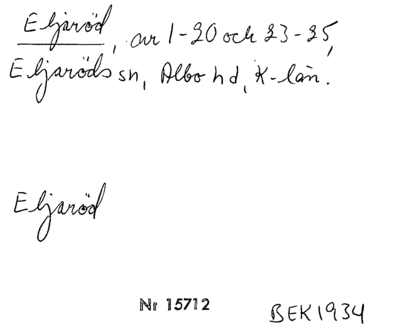 Eljaröd, nr 1-20 och 23-25,
Eljaröds sn, Albo hd, K-län.
Eljaröd
Nr 15712
BEK 1934